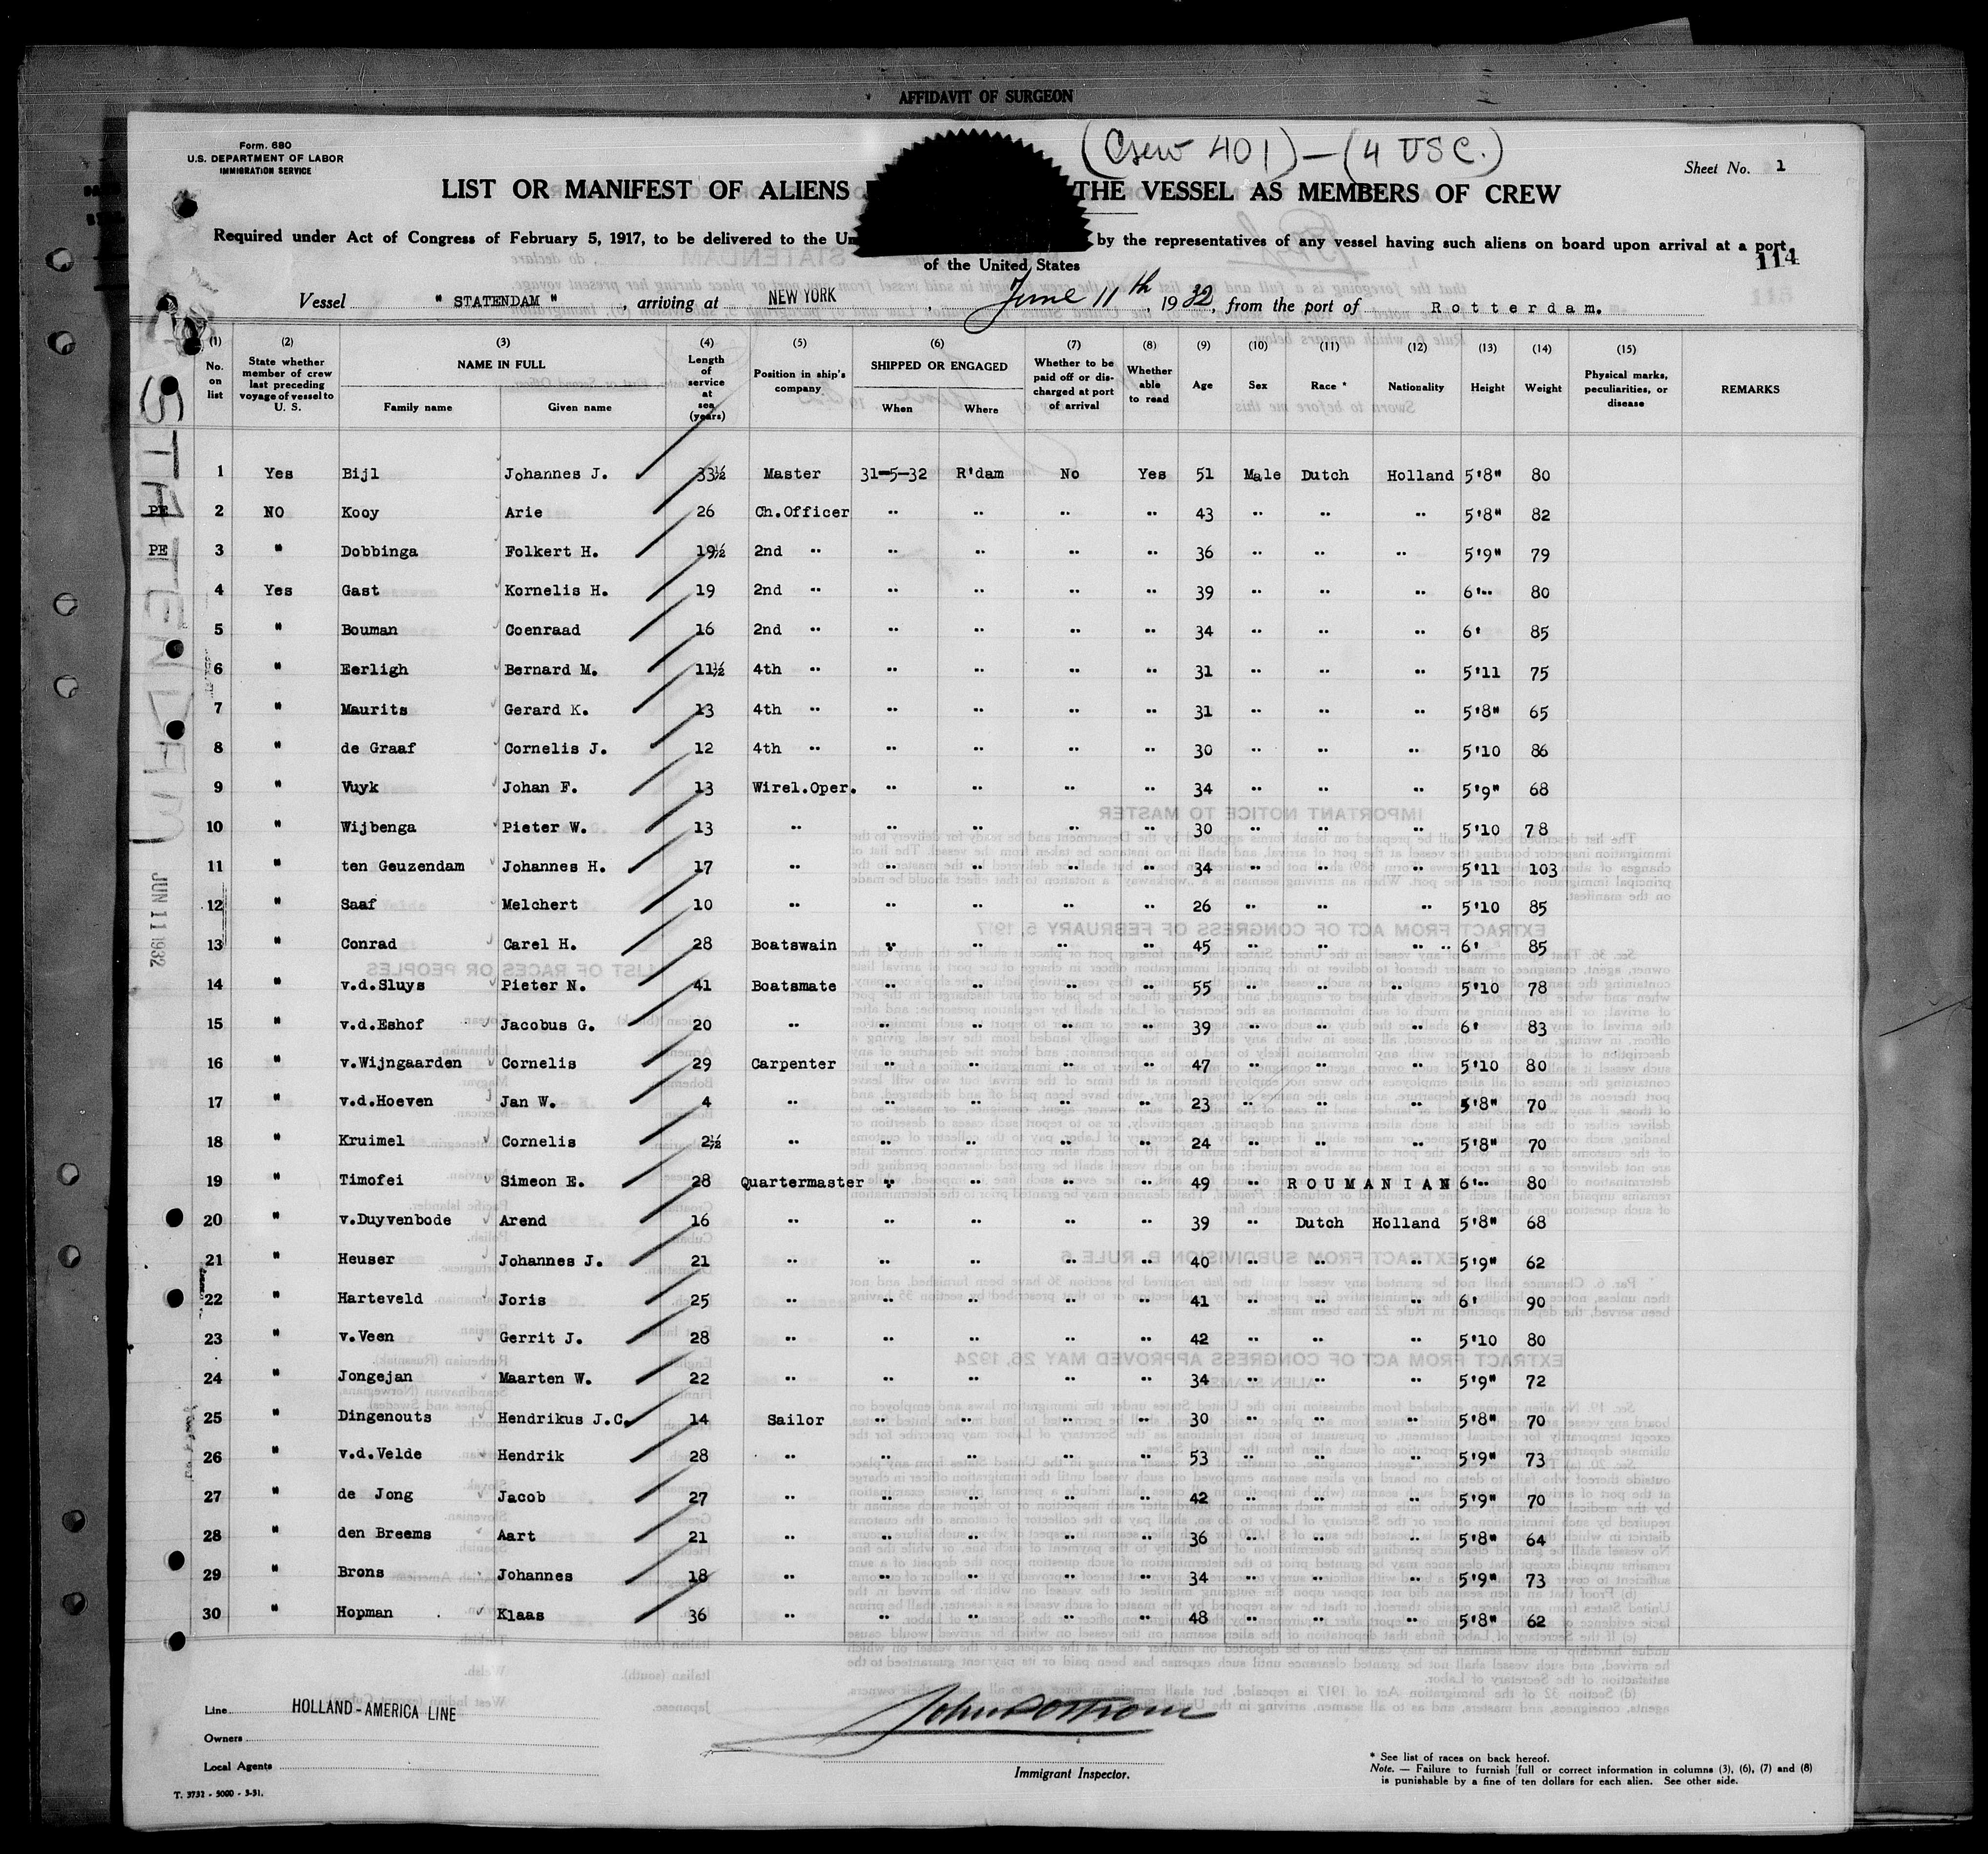 AFFIDAVIT OF SURGEON
Form. 680
U.S. DEPARTMENT OF LABOR
IMMIGRATION SERVICE
(Crew 401) — (4 USC.)
Sheet No. 1
LIST OR MANIFEST OF ALIENS THE VESSEL AS MEMBERS OF CREW
Required under Act of Congress of February 5, 1917, to be delivered to the Un by the representatives of any vessel having such aliens on board upon arrival at a port
of the United States
114
Vessel " STATENDAM " , arriving at NEW YORK , June 11th , 1932, from the port of Rotterdam.
(1) No. on list (2) State whether member of crew last preceding voyage of vessel to U. S. (3) NAME IN FULL Family name Given name (4) Length of service at sea (years) (5) Position in ship's company (6) SHIPPED OR ENGAGED When Where (7) Whether to be paid off or discharged at port of arrival (8) Whether able to read (9) Age (10) Sex (11) Race * (12) Nationality (13) Height (14) Weight (15) Physical marks, peculiarities, or disease REMARKS
1 Yes Bijl Johannes J. 33½ Master 31-5-32 R'dam No Yes 51 Male Dutch Holland 5'8" 80
PE 2 NO Kooy Arie 26 Ch.Officer " " " " 43 " " " 5'8" 82
PE 3 " Dobbinga Folkert H. 19½ 2nd " " " " " 36 " " " 5'9" 79
4 Yes Gast Kornelis H. 19 2nd " " " " " 39 " " " 6'" 80
5 " Bouman Coenraad 16 2nd " " " " " 34 " " " 6' 85
6 " Eerligh Bernard M. 11½ 4th " " " " " 31 " " " 5'11 75
7 " Maurits Gerard K. 13 4th " " " " " 31 " " " 5'8" 65
8 " de Graaf Cornelis J. 12 4th " " " " " 30 " " " 5'10 86
9 " Vuyk Johan F. 13 Wirel.Oper. " " " " 34 " " " 5'9" 68
10 " Wijbenga Pieter W. 13 " " " " " 30 " " " 5'10 78
11 " ten Geuzendam Johannes H. 17 " " " " " 34 " " " 5'11 103
12 " Saaf Melchert 10 " " " " " 26 " " " 5'10 85
13 " Conrad Carel H. 28 Boatswain " " " " 45 " " " " 6' 85
14 " v.d.Sluys Pieter N. 41 Boatsmate " " " " 55 " " " 5'10 78
15 " v.d.Eshof Jacobus G. 20 " " " " " 39 " " " 6' 83
16 " v.Wijngaarden Cornelis 29 Carpenter " " " " 47 " " " 5'10 80
17 " v.d.Hoeven Jan W. 4 " " " " " 23 " " " 5'8" 70
18 " Kruimel Cornelis 2½ " " " " " 24 " " " 5'8" 70
19 " Timofei Simeon E. 28 Quartermaster " " " " 49 " ROUMANIAN 6'" 80
20 " v.Duyvenbode Arend 16 " " " " " 39 " Dutch Holland 5'8" 68
21 " Heuser Johannes J. 21 " " " " " 40 " " " 5'9" 62
22 " Harteveld Joris 25 " " " " " 41 " " " 6' 90
23 " v.Veen Gerrit J. 28 " " " " " 42 " " " 5'10 80
24 " Jongejan Maarten W. 22 " " " " " 34 " " " 5'9" 72
25 " Dingenouts Hendrikus J.C. 14 Sailor " " " " 30 " " " 5'8" 70
26 " v.d.Velde Hendrik 28 " " " " " 53 " " " 5'9" 73
27 " de Jong Jacob 27 " " " " " 42 " " " 5'9" 70
28 " den Breems Aart 21 " " " " " 36 " " " 5'8" 64
29 " Brons Johannes 18 " " " " " 34 " " " 5'9" 73
30 " Hopman Klaas 36 " " " " " 48 " " " 5'8" 62
STATENDAM
JUN 11 1932
Line HOLLAND-AMERICA LINE
Owners
Local Agents
T. 3732 - 5000 - 3-31.
Immigrant Inspector.
* See list of races on back hereof.
Note. — Failure to furnish full or correct information in columns (3), (6), (7) and (8)
is punishable by a fine of ten dollars for each alien. See other side.